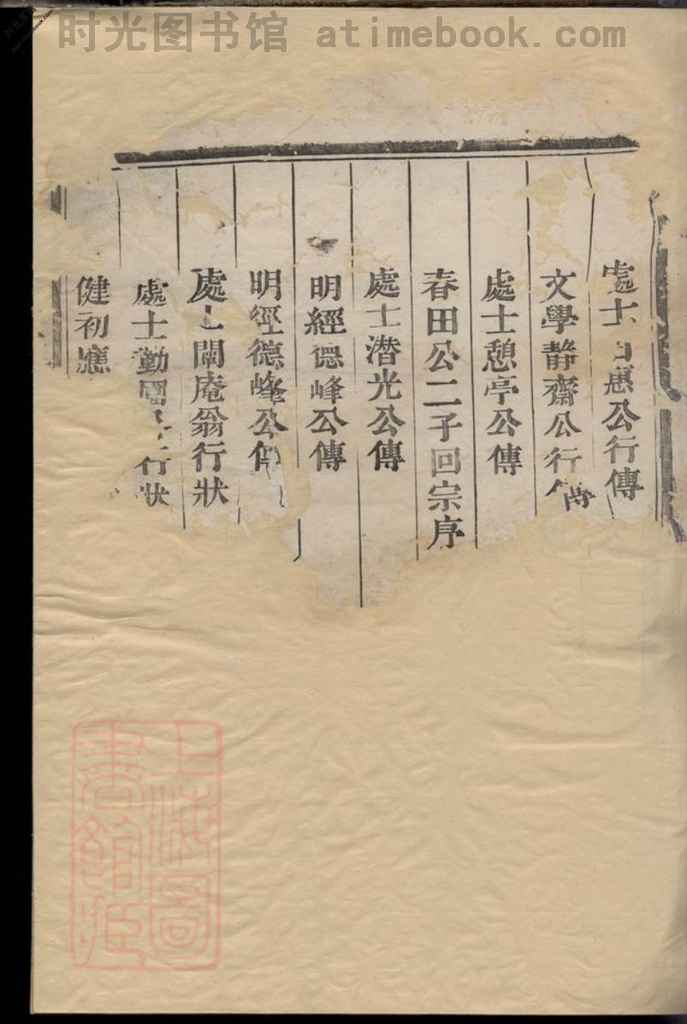 时光图书馆 atimebook.com
處士惠公行傳
文學靜齋公行傳
處士憩亭公傳
春田公二子回宗序
處士潜光公傳
明經德峰公傳
明經德峰公傳
處士閘庵翁行狀
處士勤行狀
健初應
上海圖
書館